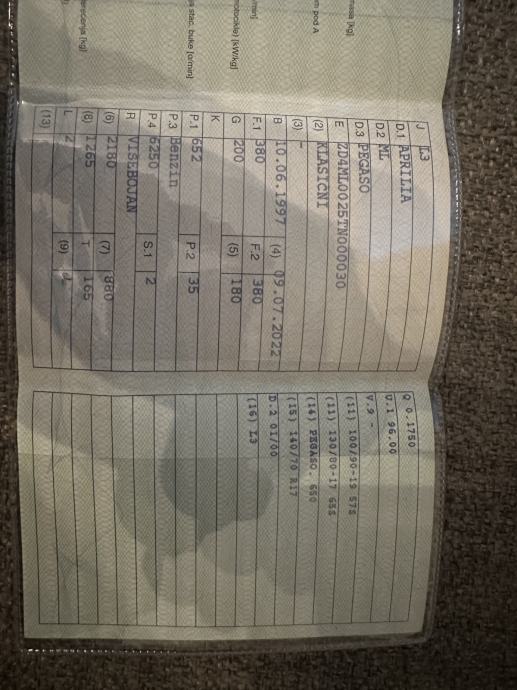 masa [kg]
m pod A
/min]
motocikle) [kW/kg]
ja stac. buke [o/min]
J L3
D.1 APRILIA
D.2 ML
D.3 PEGASO
E ZD4ML0025TN000030
(2) KLASICNI
(3) -
B 10.06.1997 (4) 09.07.2022
F.1 380 F.2 380
G 200 (5) 180
K
P.1 652 P.2 35
P.3 Benzin
P.4 6250 S.1 2
R VIŠEBOJAN
(6) 2180 (7) 880
(8) 1265 T 165
L 2 (9)
(13)
Q 0.1750
U.1 96.00
V.9 -
(11) 100/90-19 57S
(11) 130/80-17 65S
(14) PEGASO. 650
(15) 140/70 R17
D.2 01/00
(16) L3